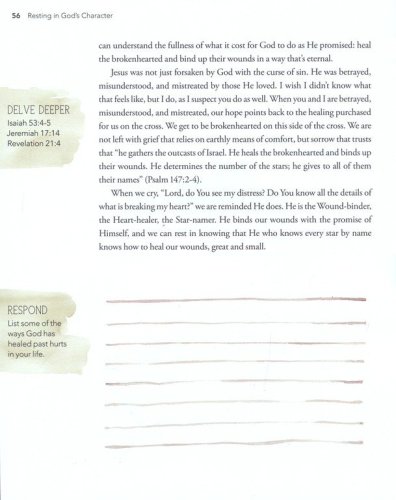 56 Resting in God's Character
can understand the fullness of what it cost for God to do as He promised: heal
the brokenhearted and bind up their wounds in a way that's eternal.
Jesus was not just forsaken by God with the curse of sin. He was betrayed,
misunderstood, and mistreated by those He loved. I wish I didn't know what
that feels like, but I do, as I suspect you do as well. When you and I are betrayed,
misunderstood, and mistreated, our hope points back to the healing purchased
for us on the cross. We get to be brokenhearted on this side of the cross. We are
not left with grief that relies on earthly means of comfort, but sorrow that trusts
that "he gathers the outcasts of Israel. He heals the brokenhearted and binds up
their wounds. He determines the number of the stars; he gives to all of them
their names" (Psalm 147:2-4).
When we cry, "Lord, do You see my distress? Do You know all the details of
what is breaking my heart?" we are reminded He does. He is the Wound-binder,
the Heart-healer, the Star-namer. He binds our wounds with the promise of
Himself, and we can rest in knowing that He who knows every star by name
knows how to heal our wounds, great and small.
DELVE DEEPER
Isaiah 53:4-5
Jeremiah 17:14
Revelation 21:4
RESPOND
List some of the
ways God has
healed past hurts
in your life.